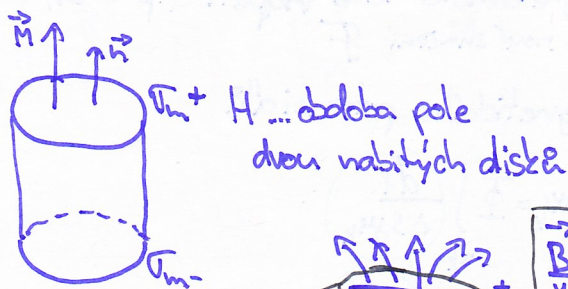 M⃗ n⃗
σₘ⁺ H ... obdoba pole
dvou nabitých disků
σₘ₋
+
B⃗